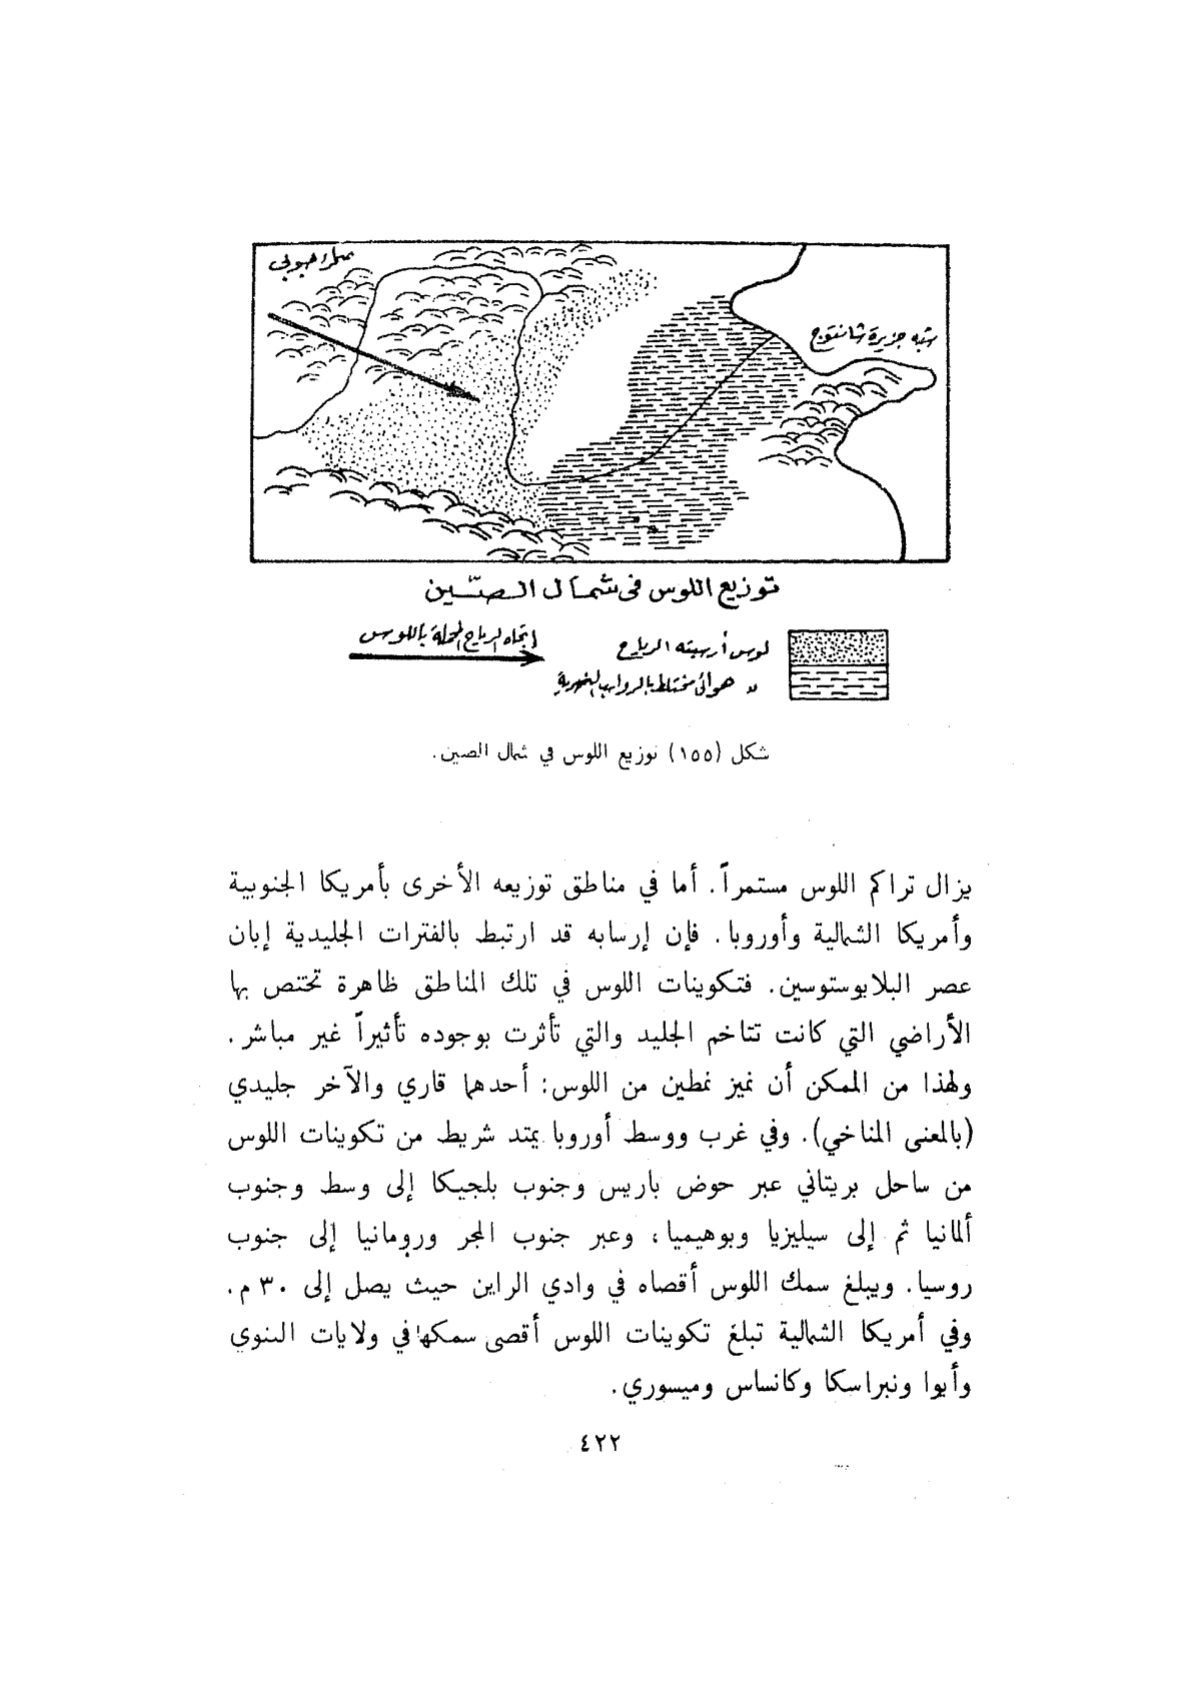 صحراء جوبي
شبه جزيرة شانتونج
توزيع اللوس فى شمال الصين
لوس أرسبته الرياح
اتجاه الرياح المحملة باللوس
〃 هوائى مختلط بالرواسب النهرية
شكل (١٥٥) توزيع اللوس في شمال الصين.
يزال تراكم اللوس مستمراً. أما في مناطق توزيعه الأخرى بأمريكا الجنوبية
وأمريكا الشمالية وأوروبا. فإن إرسابه قد ارتبط بالفترات الجليدية إبان
عصر البلايوستوسين. فتكوينات اللوس في تلك المناطق ظاهرة تختص بها
الأراضي التي كانت تتاخم الجليد والتي تأثرت بوجوده تأثيراً غير مباشر.
ولهذا من الممكن أن نميز نمطين من اللوس: أحدهما قاري والآخر جليدي
(بالمعنى المناخي). وفي غرب ووسط أوروبا يمتد شريط من تكوينات اللوس
من ساحل بريتاني عبر حوض باريس وجنوب بلجيكا إلى وسط وجنوب
ألمانيا ثم إلى سيليزيا وبوهيميا، وعبر جنوب المجر ورومانيا إلى جنوب
روسيا. ويبلغ سمك اللوس أقصاه في وادي الراين حيث يصل إلى ٣٠ م.
وفي أمريكا الشمالية تبلغ تكوينات اللوس أقصى سمكها في ولايات الينوي
وأيوا ونبراسكا وكانساس وميسوري.
٤٢٢